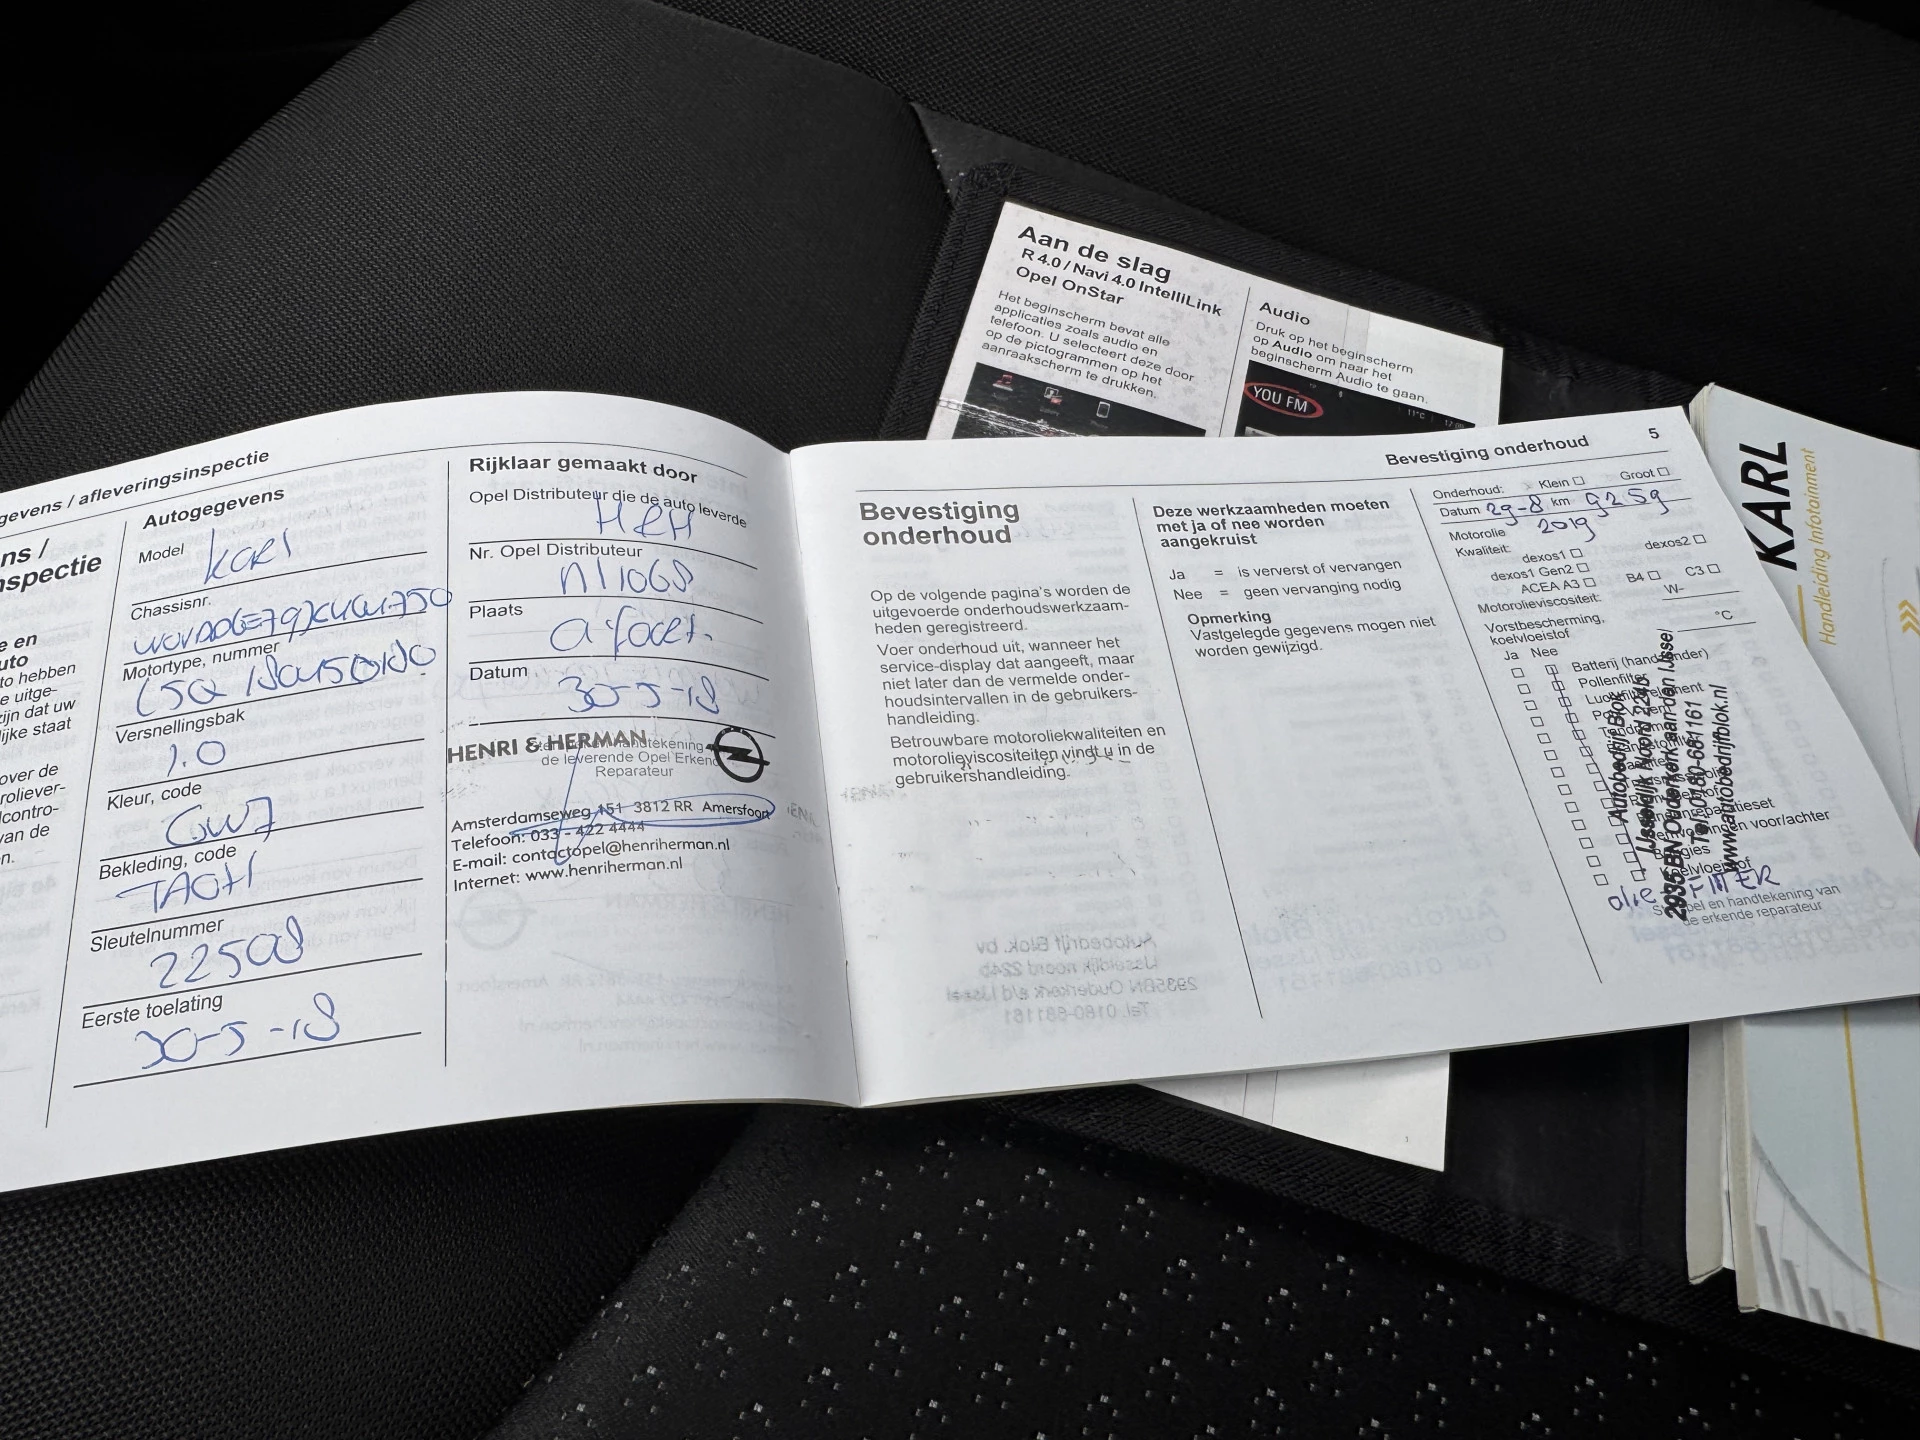 Aan de slag
R 4.0 / Navi 4.0 IntelliLink
Opel OnStar
Het beginscherm bevat alle
applicaties zoals audio en
telefoon. U selecteert deze door
op de pictogrammen op het
aanraakscherm te drukken.
Audio
Druk op het beginscherm
op Audio om naar het
beginscherm Audio te gaan.
YOU FM
11°C
KARL
Handleiding Infotainment
gevens / afleveringsinspectie
ns /
nspectie
e en
uto
to hebben
e uitge-
zijn dat uw
ijke staat
over de
roliever-
lcontro-
van de
n.
Autogegevens
Model karl
Chassisnr.
Motortype, nummer
Versnellingsbak
1.0
Kleur, code
GW7
Bekleding, code
TAOH
Sleutelnummer
22508
Eerste toelating
30-5-18
Rijklaar gemaakt door
Opel Distributeur die de auto leverde
H&H
Nr. Opel Distributeur
nl1068
Plaats
Datum
30-5-18
HENRI & HERMAN
handtekening
de leverende Opel Erkend
Reparateur
Amsterdamseweg 151 3812 RR Amersfoort
Telefoon: 033 - 422 4444
E-mail: contactopel@henriherman.nl
Internet: www.henriherman.nl
Bevestiging onderhoud 5
Bevestiging
onderhoud
Op de volgende pagina's worden de
uitgevoerde onderhoudswerkzaam-
heden geregistreerd.
Voer onderhoud uit, wanneer het
service-display dat aangeeft, maar
niet later dan de vermelde onder-
houdsintervallen in de gebruikers-
handleiding.
Betrouwbare motoroliekwaliteiten en
motorolieviscositeiten vindt u in de
gebruikershandleiding.
Deze werkzaamheden moeten
met ja of nee worden
aangekruist
Ja = is ververst of vervangen
Nee = geen vervanging nodig
Opmerking
Vastgelegde gegevens mogen niet
worden gewijzigd.
Onderhoud: Klein Groot
Datum 29-8 km 9259
2019
Motorolie
Kwaliteit:
dexos1 dexos2
dexos1 Gen2
ACEA A3 B4 C3
Motorolieviscositeit: W-
Vorstbescherming,
koelvloeistof °C
Ja Nee
Batterij (handzender)
Pollenfilter
Koelvloeistof
olie FILTER
Stempel en handtekening van
de erkende reparateur
Autobedrijf Blok
IJsseldijk Noord 224b
2935 BN Ouderkerk aan den IJssel
Tel. 0180-681161
www.autobedrijfblok.nl
1